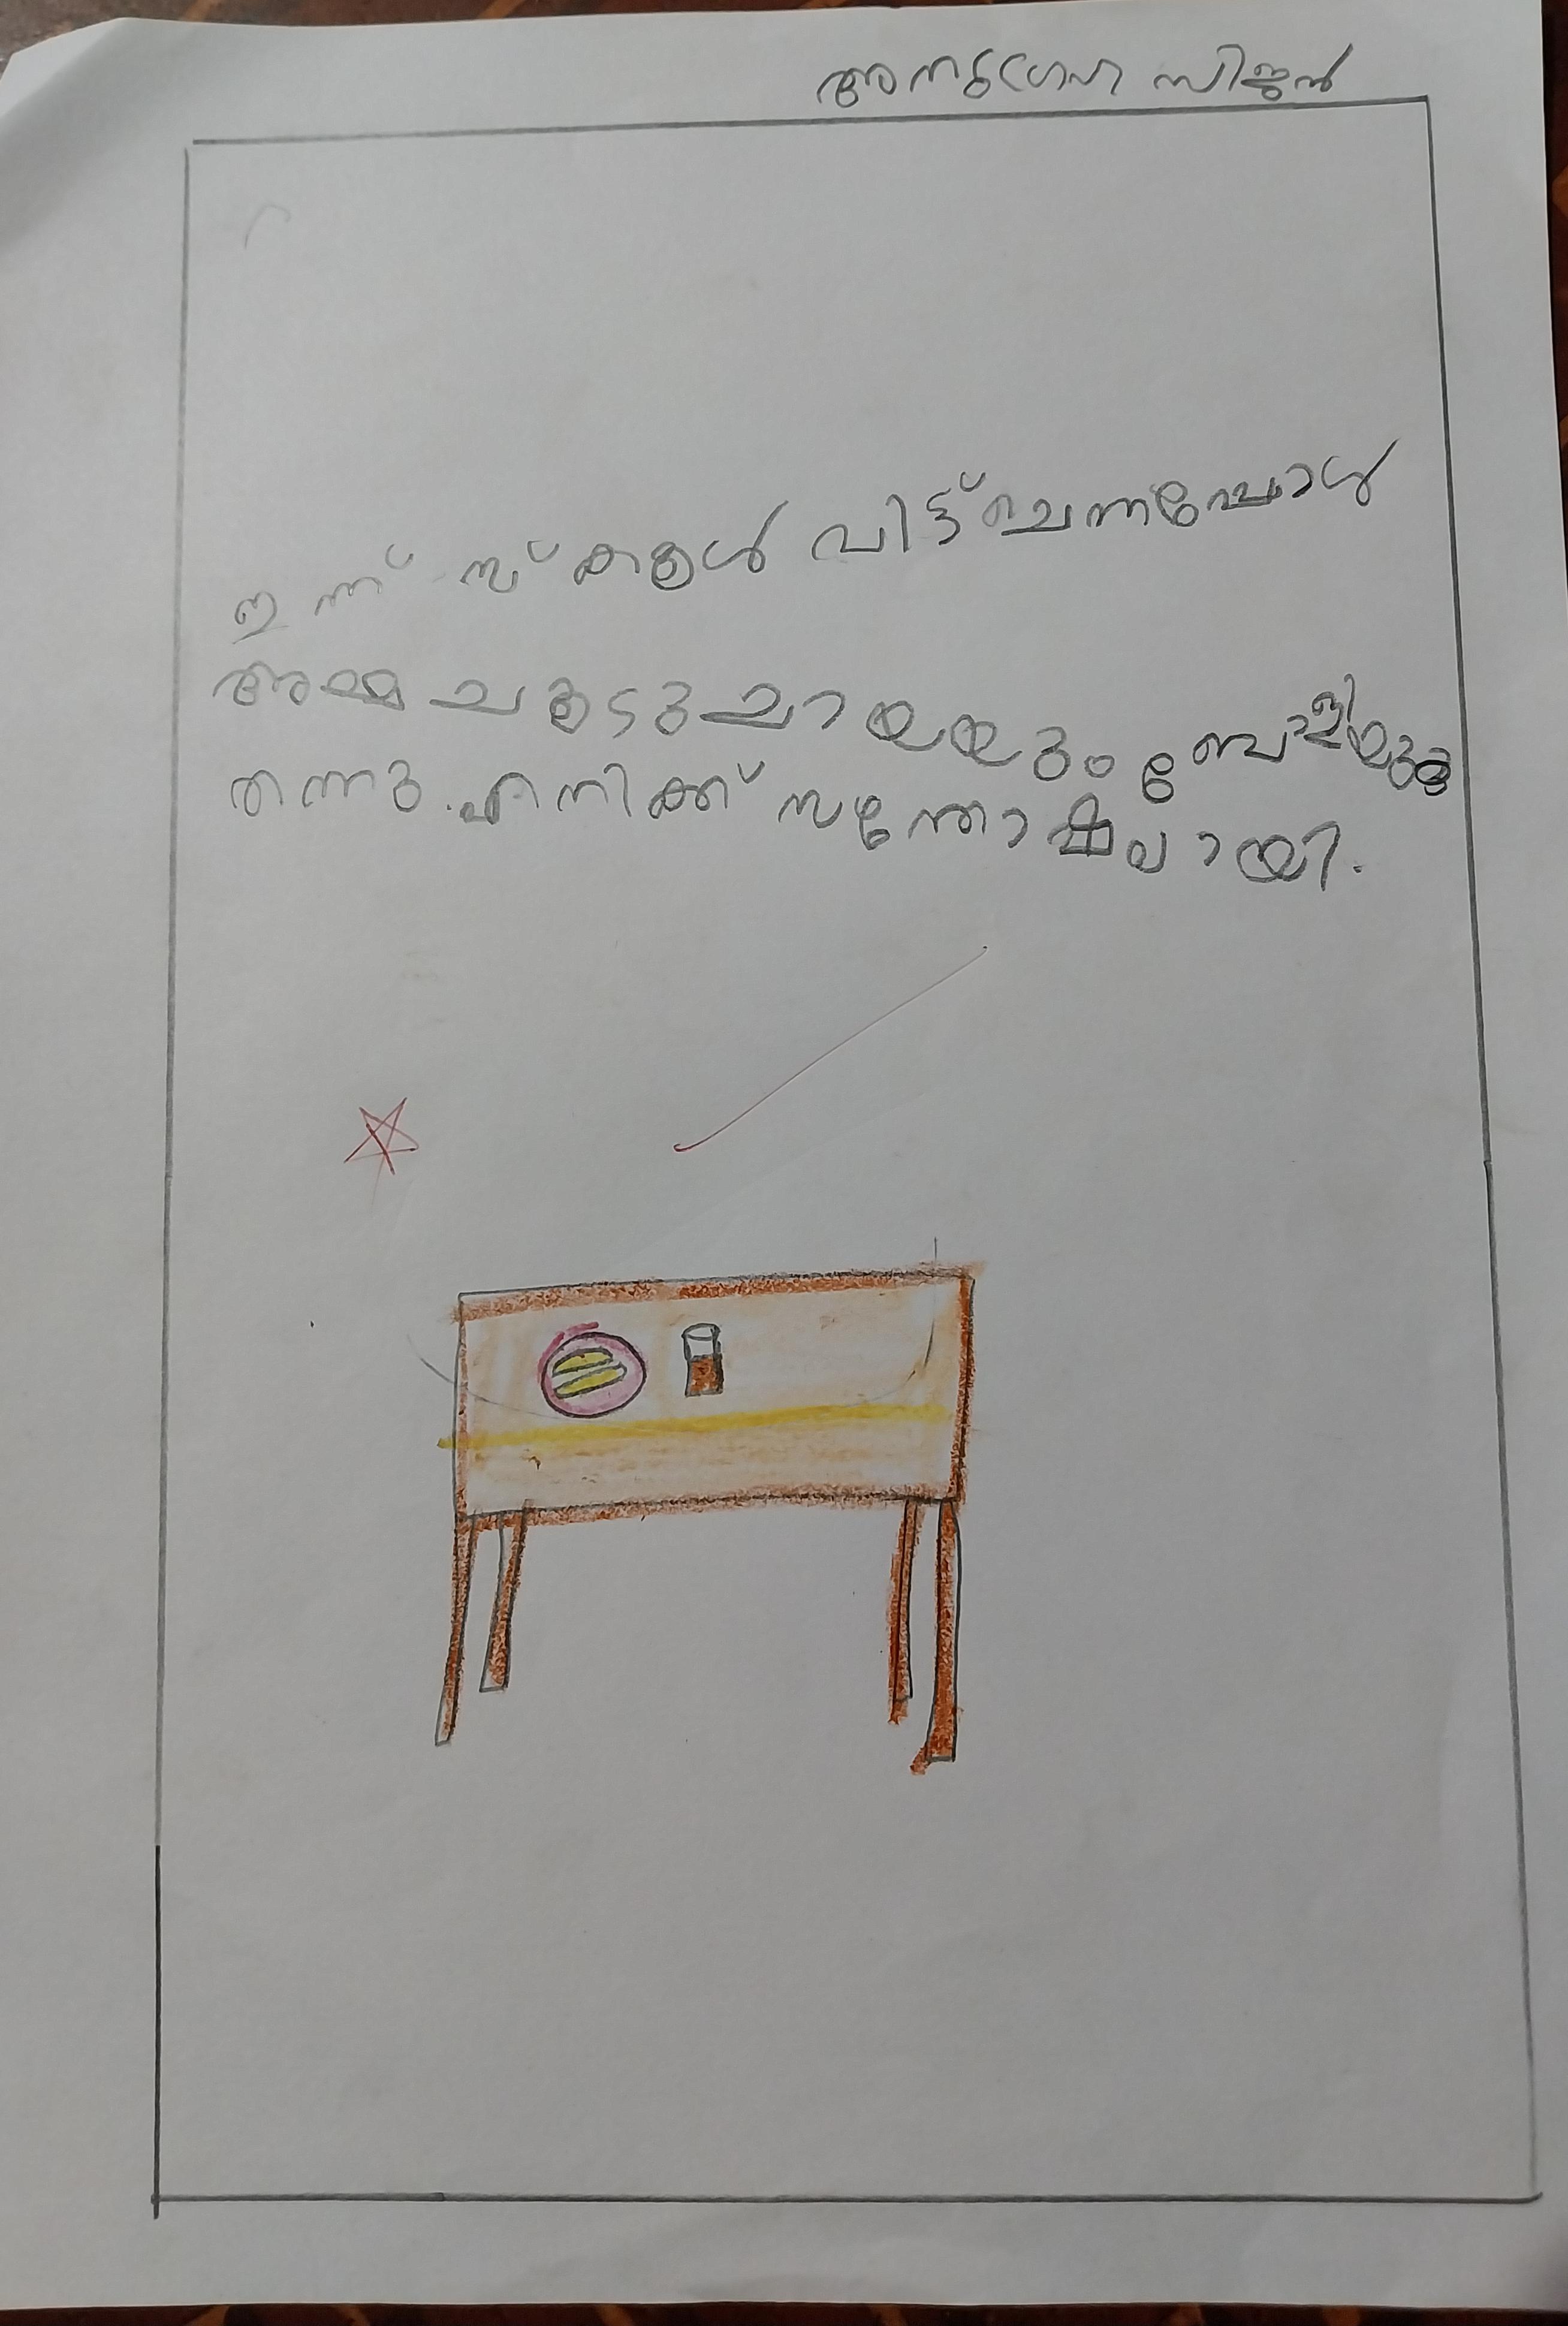 അനുഗ്രഹ സിജൻ
ഇന്ന് സ്കൂൾ വിട്ട് ചെന്നപ്പോൾ
അമ്മ ചൂടുചായയും ബോളിയും
തന്നു. എനിക്ക് സന്തോഷമായി.